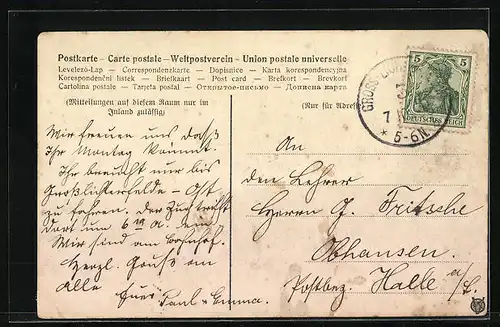 Postkarte - Carte postale - Weltpostverein - Union postale universelle
Levelező-Lap — Correspondenzkarte — Dopisnice — Karta korespondencyjna
Korespondenční listek — Briefkaart — Post card — Brefkort — Brevkort
Cartolina postale — Tarjeta postal — Открытое-письмо — Дописна карта
(Mitteilungen auf diesem Raum nur im
Inland zulässig)
(Nur für Adresse)
5 5
DEUTSCHES REICH
GROSS-
7
* 5-6N
Wir freuen uns daß
Ihr Montag kommt.
Ihr braucht nur bis
Großlichterfelde - Ost
zu fahren. Der Zug trifft
dort um 6 19 A. ein.
Wir sind am Bahnhof.
Herzl. Gruß an
Alle
Euer Paul + Emma.
An
den Lehrer
Herrn G. Fritsche
Obhausen.
Postbez. Halle a/S.